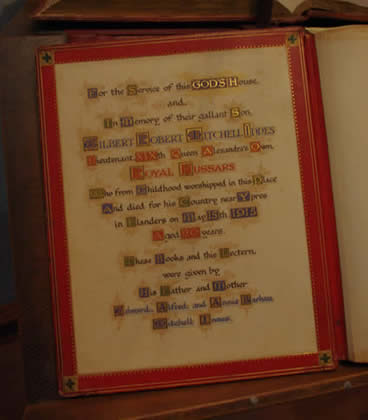 For the Service of this GOD'S House,
and,
In Memory of their gallant Son,
GILBERT ROBERT MITCHELL INNES
Lieutenant XIXth Queen Alexandra's Own,
ROYAL HUSSARS
Who from Childhood worshipped in this Place
And died for his Country near Ypres
in Flanders on May 15th 1915
Aged 20 years.
These Books and this Lectern,
were given by
His Father and Mother
Edward, Alfred, and Annie
Mitchell Innes.